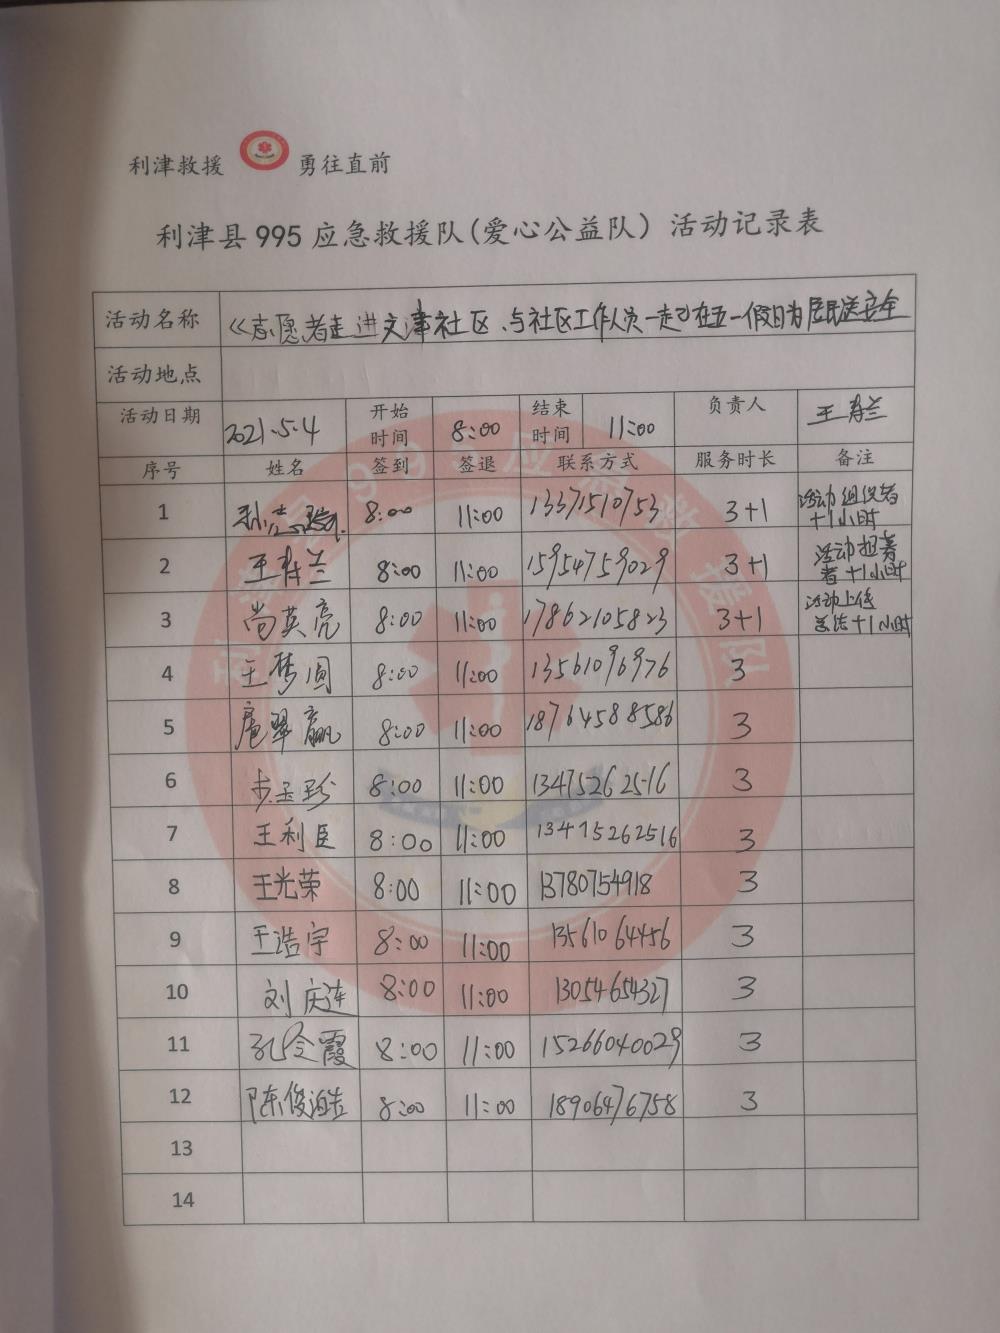 利津救援 勇往直前
利津县 995 应急救援队(爱心公益队) 活动记录表
活动名称 《志愿者走进文津社区、与社区工作人员一起》在五一假日为居民送安全
活动地点
活动日期 2021.5.4 开始时间 8:00 结束时间 11:00 负责人 王寿兰
序号 姓名 签到 签退 联系方式 服务时长 备注
1 8:00 11:00 13371510753 3+1 活动组织者+1小时
2 王寿兰 8:00 11:00 15954759029 3+1 活动 者+1小时
3 尚英亮 8:00 11:00 17862105823 3+1 活动上传 +1小时
4 王梦圆 8:00 11:00 3
5 扈翠赢 8:00 11:00 18764588586 3
6 8:00 11:00 13475262516 3
7 王利臣 8:00 11:00 13475262516 3
8 王光荣 8:00 11:00 13780754918 3
9 王浩宇 8:00 11:00 13561064456 3
10 刘庆莲 8:00 11:00 13054654327 3
11 孔令霞 8:00 11:00 15266040029 3
12 陈俊 8:00 11:00 18906476758 3
13
14